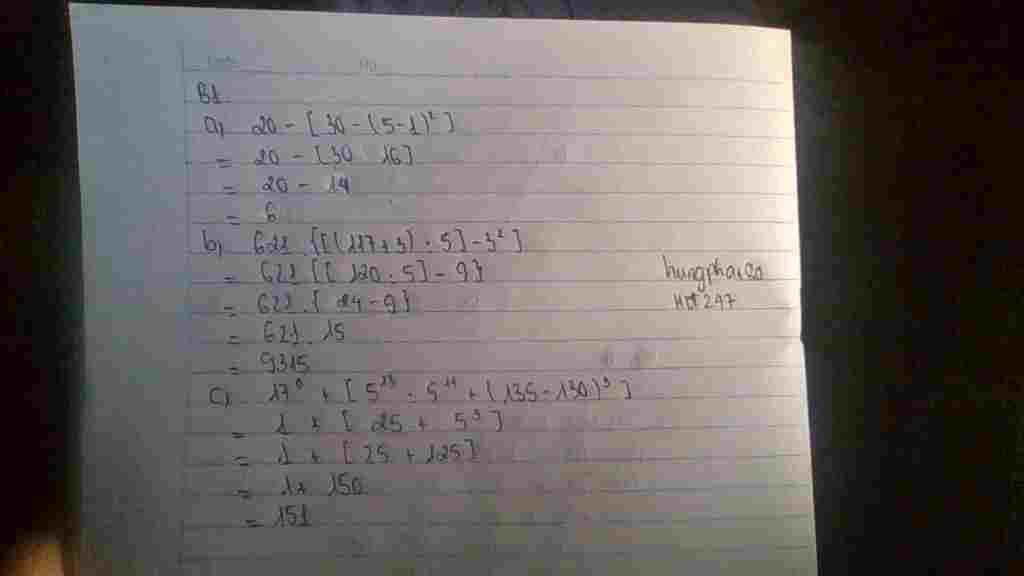 B1.
a) 20 - [30 - (5-1)²]
= 20 - [30 16]
= 20 - 14
= 6
b) 621 . {[(117+3) : 5] - 3²]
= 621 . {[120 : 5] - 9}
= 621 . { 24 - 9}
= 621 . 15
= 9315
hungphaico
HĐ 247
c) 17⁰ + [5¹³ : 5¹¹ + (135 - 130)³]
= 1 + [25 + 5³]
= 1 + [25 + 125]
= 1 + 150
= 151